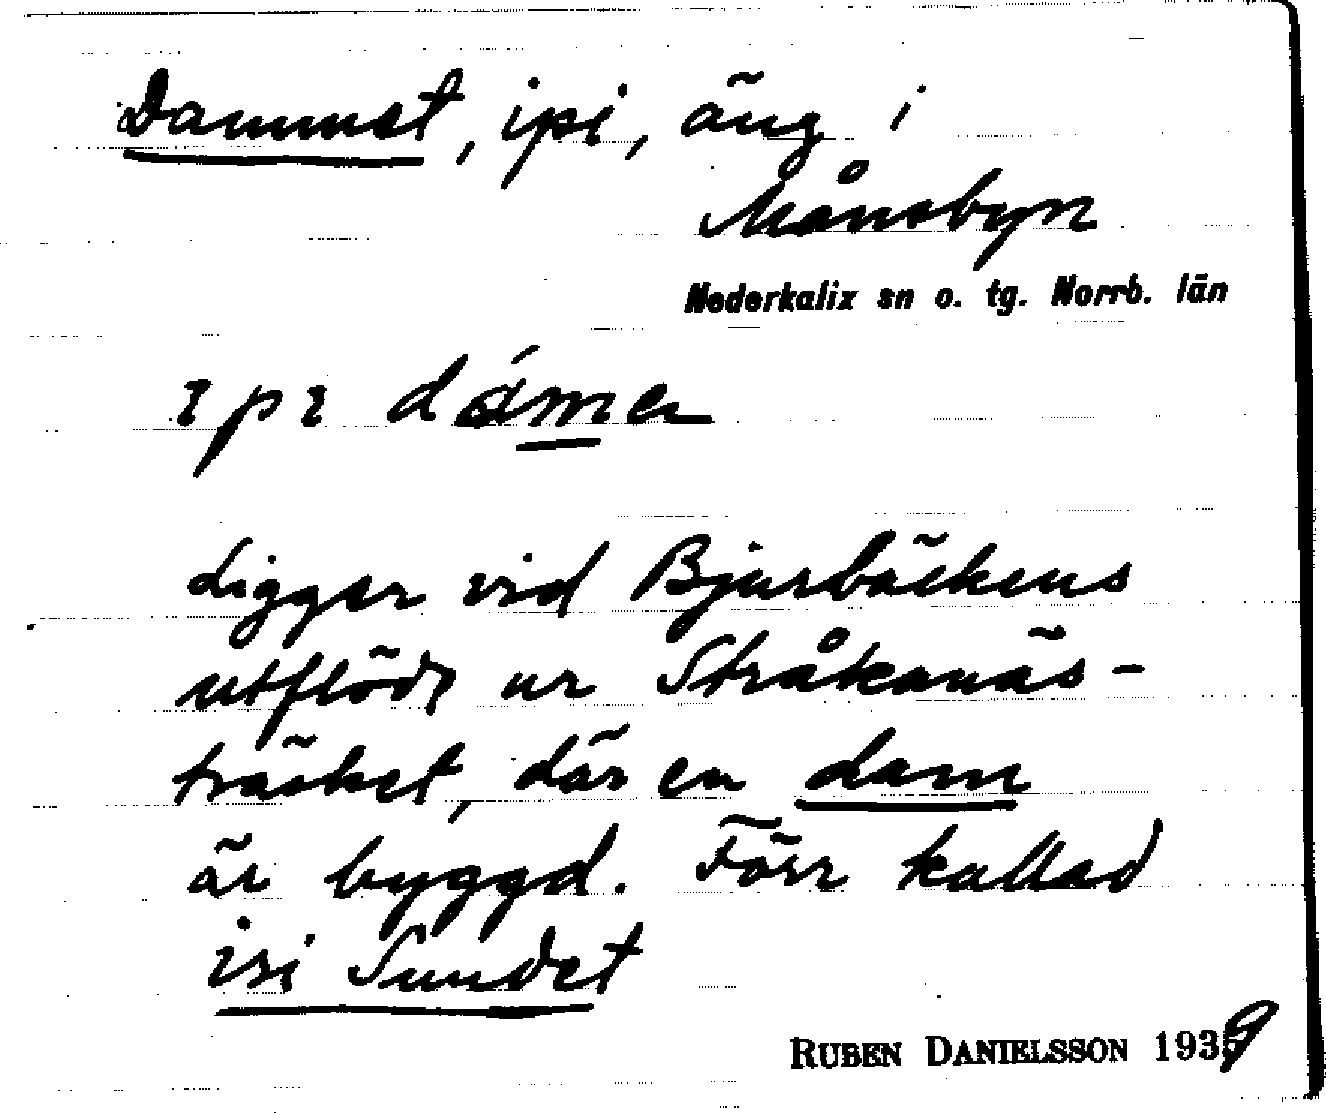 Dammet, ipi, äng i
Månsbyn
Nederkalix sn o. tg. Norrb. län
ɩpɩ dámen
Ligger vid Bjurbäckens
utflöde ur Stråkanäs-
träsket, där en dam
är byggd. Förr kallad
isi Sundet
RUBEN DANIELSSON 1939